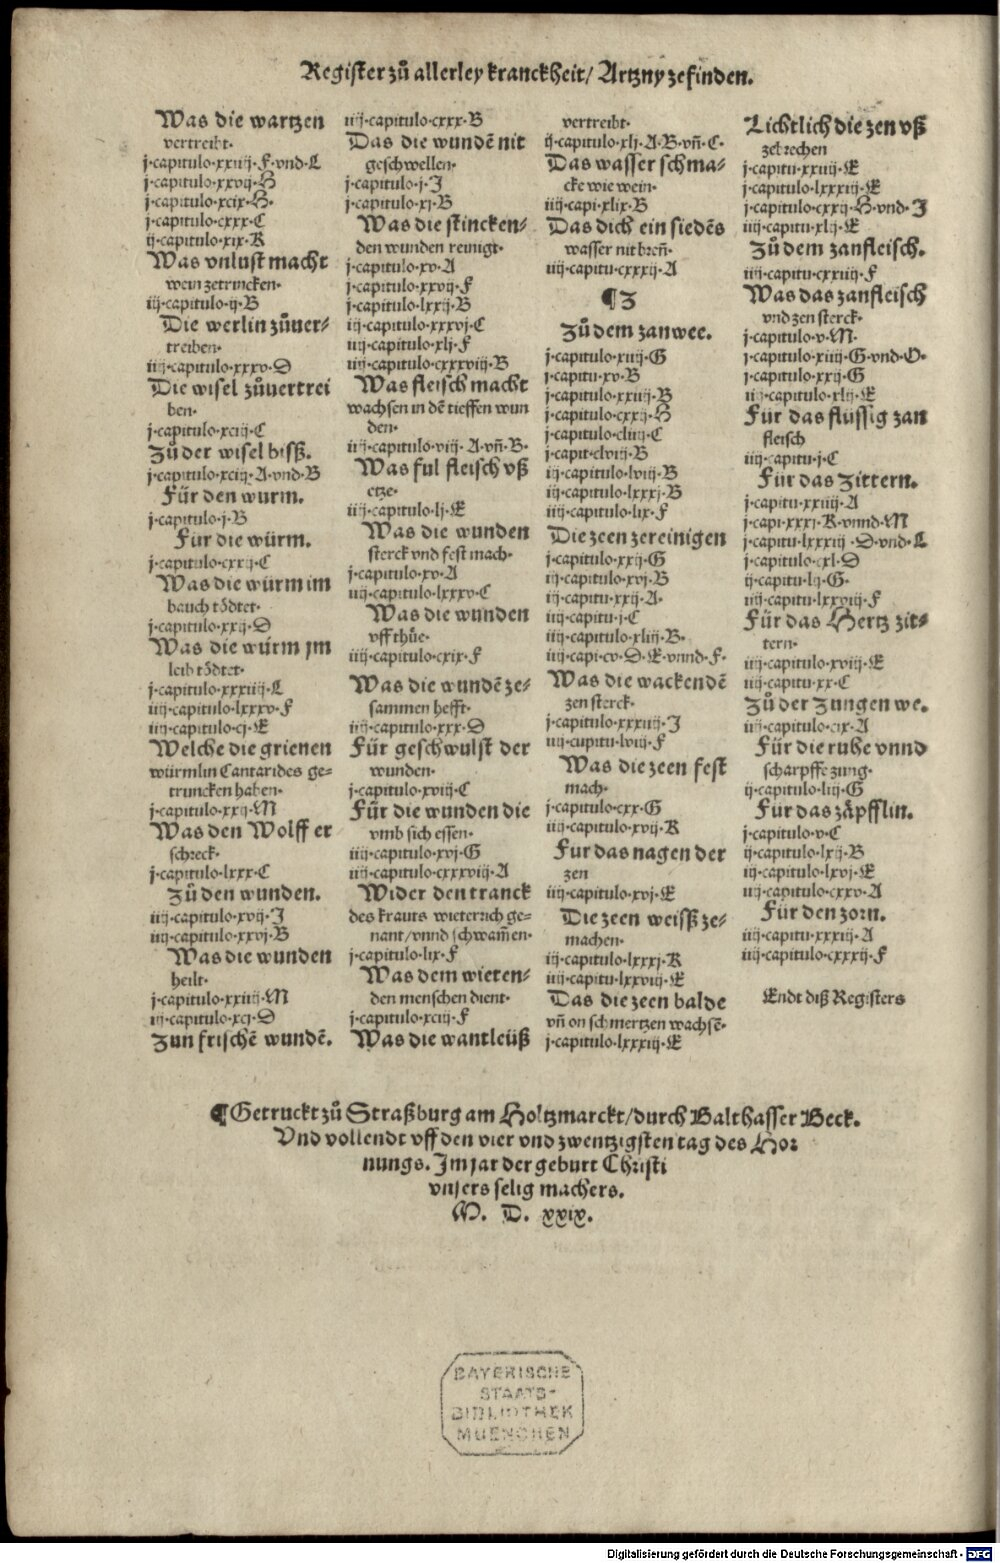 Register zů allerley kranckheit/ Artzny zefinden.
Was die wartzen
vertreibt.
j.capitulo.xxiiij.F.vnd.L
j.capitulo.xxvij.H
j.capitulo.xcix.H.
j.capitulo.cxxx.C
ij.capitulo.xix.K
Was vnlust macht
wein zetrincken.
iij.capitulo.ij.B
Die werlin zůuer-
treiben.
iij.capitulo.xxxv.D
Die wisel zůuertrei
ben.
j.capitulo.xciij.C
Zů der wisel bisß.
j.capitulo.xciij.A.vnd.B
Für den wurm.
j.capitulo.j.B
Für die würm.
j.capitulo.cxxij.C
Was die würm im
bauch tödtet.
j.capitulo.xxij.D
Was die würm jm
leib tödtet.
j.capitulo.xxxiiij.L
iiij.capitulo.lxxxv.F
iiij.capitulo.cj.E
Welche die grienen
würmlin Cantarides ge-
truncken haben.
j.capitulo.xxij.M
Was den Wolff er
schreck.
j.capitulo.lxxx.C
Zů den wunden.
iiij.capitulo.xvij.J
iiij.capitulo.xxvj.B
Was die wunden
heilt.
j.capitulo.xxiiij.M
iij.capitulo.xcj.D
Zun frischē wundē.
iiij.capitulo.cxxx.B
Das die wundē nit
geschwellen.
j.capitulo.j.J
j.capitulo.xj.B
Was die stincken-
den wunden reinigt.
j.capitulo.xv.A
j.capitulo.xxvij.F
j.capitulo.lxxij.B
iij.capitulo.xxxvj.C
iiij.capitulo.xlj.F
iiij.capitulo.cxxxviij.B
Was fleisch macht
wachsen in dē tieffen wun
den.
iiij.capitulo.viij.A.vñ.B.
Was ful fleisch vß
etze.
iij.capitulo.lj.E
Was die wunden
sterck vnd fest mach.
j.capitulo.xv.A
iiij.capitulo.lxxxv.C
Was die wunden
vff thůe.
iiij.capitulo.cxix.F
Was die wundē ze-
sammen hefft.
iij.capitulo.xxx.D
Für geschwulst der
wunden.
j.capitulo.xviij.C
Für die wunden die
vmb sich essen.
iij.capitulo.xvj.G
iiij.capitulo.cxxxviij.A
Wider den tranck
des krauts wieterich ge-
nant/vnnd schwam̄en.
j.capitulo.lix.F
Was dem wieten-
den menschen dient.
j.capitulo.xciij.F
Was die wantleüß
vertreibt.
ij.capitulo.xlj.A.B.vñ.C.
Das wasser schma-
cke wie wein.
iiij.capi.xlix.B
Das dich ein siedēs
wasser nit breñ.
iiij.capitu.cxxxij.A
¶Z
Zů dem zanwee.
j.capitulo.xiiij.G
j.capitu.xv.B
j.capitulo.xxiiij.B
j.capitulo.cxxij.H
j.capitulo.cliiij.C
j.capit.clviij.B
iij.capitulo.lviij.B
iij.capitulo.lxxxj.B
iiij.capitulo.lix.F
Die zeen zereinigen
j.capitulo.xxij.G
iij.capitulo.xvj.B
iij.capitu.xxij.A.
iiij.capitu.j.C
iiij.capitulo.xliij.B.
iiij.capi.cv.D.E.vnnd.F.
Was die wackendē
zen sterck.
j.capitulo.xxxiiij.J
iiij.capitu.lviij.F
Was die zeen fest
mach.
j.capitulo.cxx.G
iij.capitulo.xvij.K
Fur das nagen der
zen
iij.capitulo.xvj.E
Die zeen weisß ze-
machen.
iij.capitulo.lxxxj.K
iiij.capitu.lxxviij.E
Das die zeen balde
vñ on schmertzen wachsē.
j.capitulo.lxxxiij.E
Lichtlich die zen vß
zebrechen
j.capitu.xxiiij.E
j.capitulo.lxxxiij.E
j.capitulo.cxxij.H.vnd.J
iiij.capitu.xlij.E
Zů dem zanfleisch.
iij.capitu.cxxiiij.F
Was das zanfleisch
vnd zen sterck.
j.capitulo.v.M.
j.capitulo.xiiij.G.vnd.O.
j.capitulo.xxij.G
iij.capitulo.xlij.E
Für das flüssig zan
fleisch
iiij.capitu.j.C
Für das zittern.
j.capitu.xxiiij.A
j.capi.xxxj.K.vnnd.M
j.capitu.lxxxiij.D.vnd.L
j.capitulo.cxl.D
ij.capitu.lij.G.
iij.capitu.lxxviij.F
Für das Hertz zit-
tern.
iij.capitulo.xviij.E
iij.capitu.xx.C
Zů der Zungen we.
iij.capitulo.cix.A
Für die ruhe vnnd
scharpffe zung.
ij.capitulo.liij.G
Für das zäpfflin.
j.capitulo.v.C
ij.capitulo.lxij.B
iij.capitulo.lxvj.E
iij.capitulo.cxxv.A
Für den zorn.
iij.capitu.xxxiij.A
iij.capitulo.cxxxij.F
Endt diß Registers
¶Getruckt zů Straßburg am Holtzmarckt/durch Balthasser Beck.
Vnd vollendt vff den vier vnd zwentzigsten tag des Hor
nungs. Im jar der geburt Christi
vnsers selig machers.
M. D. xxix.
BAYERISCHE
STAATS-
BIBLIOTHEK
MUENCHEN
Digitalisierung gefördert durch die Deutsche Forschungsgemeinschaft - DFG